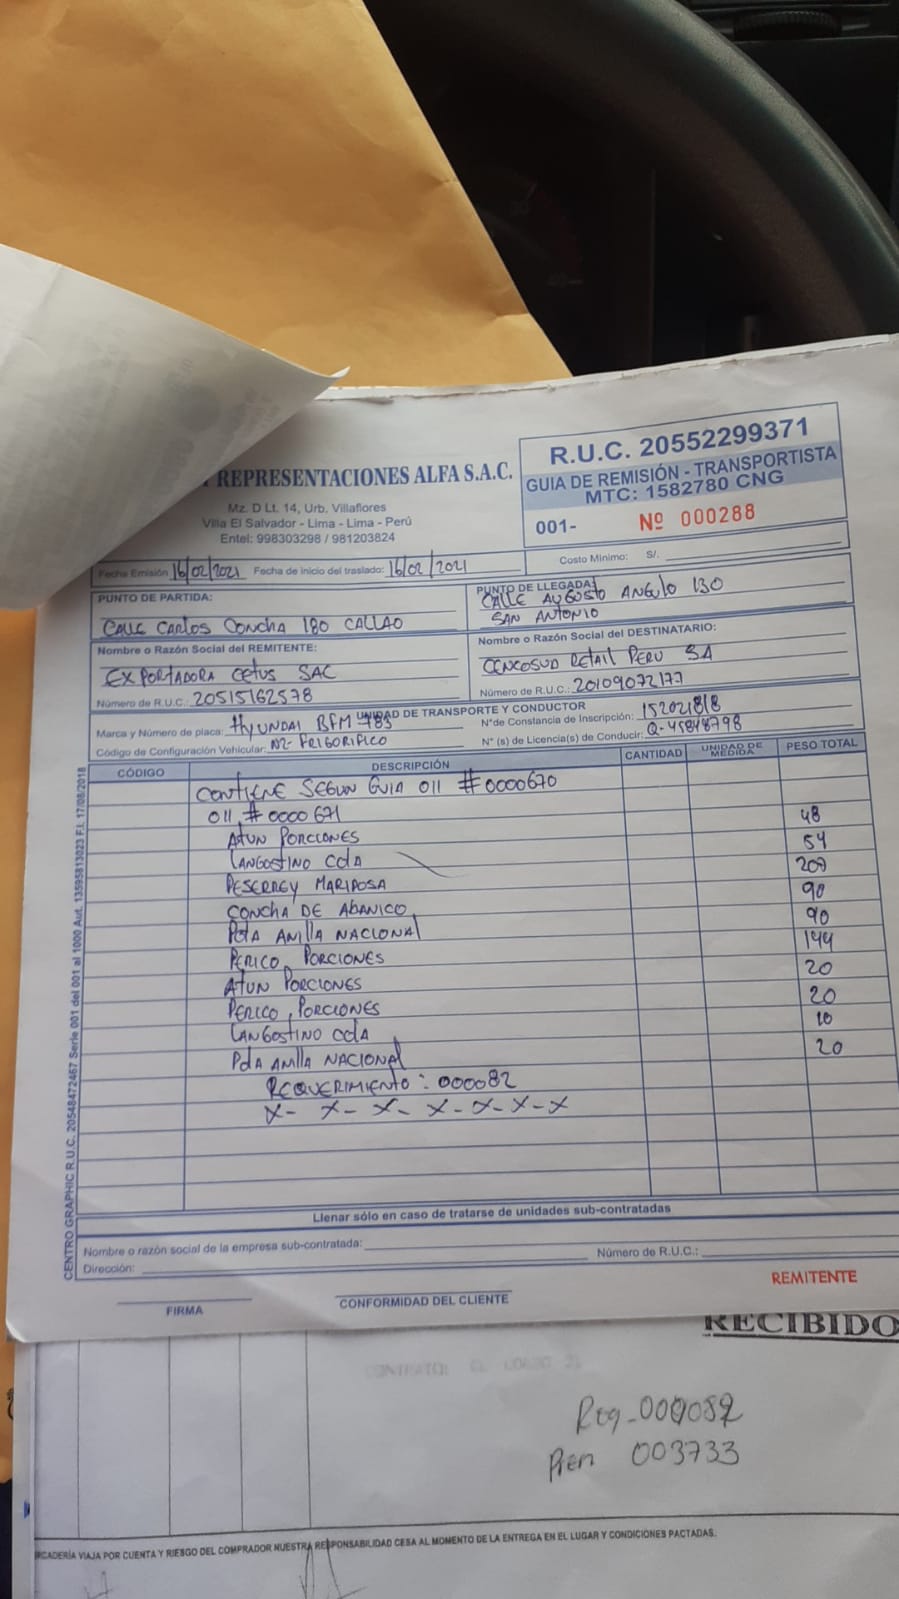 REPRESENTACIONES ALFA S.A.C.
Mz. D Lt. 14, Urb. Villaflores
Villa El Salvador - Lima - Lima - Perú
Entel: 998303298 / 981203824
R.U.C. 20552299371
GUIA DE REMISIÓN - TRANSPORTISTA
MTC: 1582780 CNG
001- Nº 000288
Fecha Emisión 16/02/2021 Fecha de inicio del traslado: 16/02/2021
Costo Mínimo: S/.
PUNTO DE PARTIDA:
CALLE CARLOS CONCHA 180 CALLAO
PUNTO DE LLEGADA:
CALLE AUGUSTO ANGULO 130
SAN ANTONIO
Nombre o Razón Social del REMITENTE:
EXPORTADORA CETUS SAC
Número de R.U.C.: 20515162578
Nombre o Razón Social del DESTINATARIO:
CENCOSUD RETAIL PERU SA
Número de R.U.C.: 20109072177
UNIDAD DE TRANSPORTE Y CONDUCTOR
Marca y Número de placa: HYUNDAI BFM 783
Código de Configuración Vehicular: N2- FRIGORIFICO
N°de Constancia de Inscripción: 152021818
N° (s) de Licencia(s) de Conducir: Q-45848798
CÓDIGO DESCRIPCIÓN CANTIDAD UNIDAD DE MEDIDA PESO TOTAL
CONTIENE SEGUN GUIA 011 #0000670
011 #0000671
ATUN PORCIONES 48
LANGOSTINO COLA 54
PESERREY MARIPOSA 200
CONCHA DE ABANICO 90
POTA ANILLA NACIONAL 90
PERICO PORCIONES 144
ATUN PORCIONES 20
PERICO PORCIONES 20
LANGOSTINO COLA 10
POTA ANILLA NACIONAL 20
REQUERIMIENTO: 000082
X- X- X- X- X- X- X
Llenar sólo en caso de tratarse de unidades sub-contratadas
Nombre o razón social de la empresa sub-contratada:
Número de R.U.C.:
Dirección:
FIRMA
CONFORMIDAD DEL CLIENTE
REMITENTE
CENTRO GRAPHIC R.U.C. 20548472467 Serie 001 del 001 al 1000 Aut. 13595813023 F.I. 17/08/2018
RECIBIDO
Req-000082
003733
MERCADERÍA VIAJA POR CUENTA Y RIESGO DEL COMPRADOR NUESTRA RESPONSABILIDAD CESA AL MOMENTO DE LA ENTREGA EN EL LUGAR Y CONDICIONES PACTADAS.